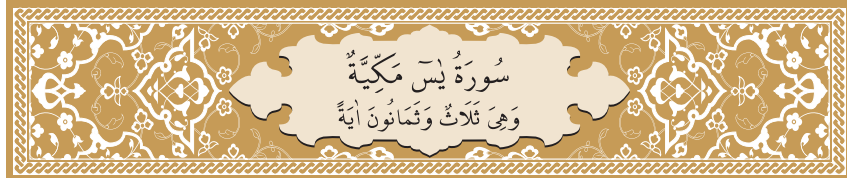 سُورَةُ يٰسٓ مَكِّيَّةٌ
وَهِىَ ثَلَاثٌ وَثَمَانُونَ اٰيَةً